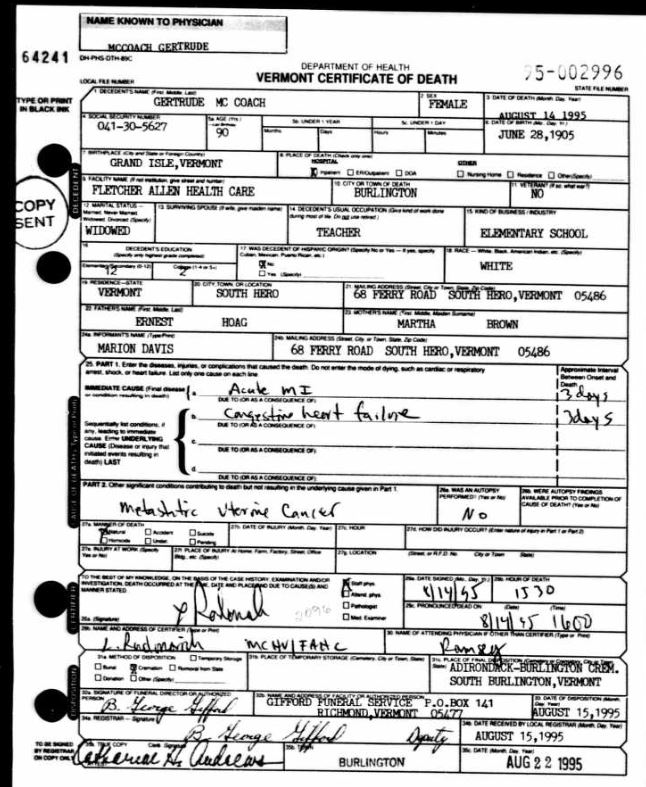 NAME KNOWN TO PHYSICIAN
MCCOACH GERTRUDE
64241
DH-PHS-DTH-89C
DEPARTMENT OF HEALTH
VERMONT CERTIFICATE OF DEATH
95-002996
LOCAL FILE NUMBER
STATE FILE NUMBER
TYPE OR PRINT IN BLACK INK
1. DECEDENT'S NAME (First, Middle, Last)
GERTRUDE MC COACH
2. SEX
FEMALE
3. DATE OF DEATH (Month, Day, Year)
AUGUST 14 1995
4. SOCIAL SECURITY NUMBER
041-30-5627
5a. AGE (Yrs.)
90
5b. UNDER 1 YEAR
Months Days
5c. UNDER 1 DAY
Hours Minutes
6. DATE OF BIRTH (Mo., Day, Yr.)
JUNE 28,1905
7. BIRTHPLACE (City and State or Foreign Country)
GRAND ISLE,VERMONT
8. PLACE OF DEATH (Check only one)
HOSPITAL
X Inpatient ER/Outpatient DOA
OTHER
Nursing Home Residence Other(Specify)
9. FACILITY NAME (If not institution, give street and number)
FLETCHER ALLEN HEALTH CARE
10. CITY OR TOWN OF DEATH
BURLINGTON
11. VETERAN? (If so, what war?)
NO
COPY SENT
DECEDENT
12. MARITAL STATUS - Married, Never Married, Widowed, Divorced (Specify)
WIDOWED
13. SURVIVING SPOUSE (If wife, give maiden name)
14. DECEDENT'S USUAL OCCUPATION (Give kind of work done during most of life. Do not use retired.)
TEACHER
15. KIND OF BUSINESS / INDUSTRY
ELEMENTARY SCHOOL
16. DECEDENT'S EDUCATION
(Specify only highest grade completed)
Elementary/Secondary (0-12) College (1-4 or 5+)
12 2
17. WAS DECEDENT OF HISPANIC ORIGIN? (Specify No or Yes - If yes, specify Cuban, Mexican, Puerto Rican, etc.)
X No
Yes (Specify)
18. RACE - White, Black, American Indian, etc. (Specify)
WHITE
19. RESIDENCE-STATE
VERMONT
20. CITY, TOWN, OR LOCATION
SOUTH HERO
21. MAILING ADDRESS (Street, City or Town, State, Zip Code)
68 FERRY ROAD SOUTH HERO,VERMONT 05486
22. FATHER'S NAME (First, Middle, Last)
ERNEST HOAG
23. MOTHER'S NAME (First, Middle, Maiden Surname)
MARTHA BROWN
24a. INFORMANT'S NAME (Type/Print)
MARION DAVIS
24b. MAILING ADDRESS (Street, City, or Town, State, Zip Code)
68 FERRY ROAD SOUTH HERO,VERMONT 05486
25. PART 1. Enter the diseases, injuries, or complications that caused the death. Do not enter the mode of dying, such as cardiac or respiratory arrest, shock, or heart failure. List only one cause on each line.
Approximate Interval Between Onset and Death
IMMEDIATE CAUSE (Final disease or condition resulting in death)
a. Acute MI
3 days
DUE TO (OR AS A CONSEQUENCE OF):
b. Congestive heart failure
3days
DUE TO (OR AS A CONSEQUENCE OF):
Sequentially list conditions, if any, leading to immediate cause. Enter UNDERLYING CAUSE (Disease or injury that initiated events resulting in death) LAST
c.
DUE TO (OR AS A CONSEQUENCE OF):
d.
DUE TO (OR AS A CONSEQUENCE OF):
PART 2. Other significant conditions contributing to death but not resulting in the underlying cause given in Part 1.
Metastatic Uterine Cancer
26a. WAS AN AUTOPSY PERFORMED? (Yes or No)
No
26b. WERE AUTOPSY FINDINGS AVAILABLE PRIOR TO COMPLETION OF CAUSE OF DEATH? (Yes or No)
27a. MANNER OF DEATH
Natural Accident Suicide
Homicide Undet. Pending
27b. DATE OF INJURY (Month, Day, Year)
27c. HOUR
27d. HOW DID INJURY OCCUR? (Enter nature of injury in Part 1 or Part 2)
27e. INJURY AT WORK (Specify Yes or No)
27f. PLACE OF INJURY At Home, Farm, Factory, Street, Office Bldg., etc. (Specify)
27g. LOCATION (Street, or R.F.D. No. City or Town State)
TO THE BEST OF MY KNOWLEDGE, ON THE BASIS OF THE CASE HISTORY, EXAMINATION AND/OR INVESTIGATION, DEATH OCCURRED AT THE TIME, DATE AND PLACE AND DUE TO CAUSE(S) AND MANNER STATED
28a. (Signature)
2096
Staff phys.
Attend. phys.
Pathologist
Med. Examiner
29a. DATE SIGNED (Mo., Day, Yr.)
8/14/95
29b. HOUR OF DEATH
1530
29c. PRONOUNCED DEAD ON (Date) (Time)
8/14/95 1600
28b. NAME AND ADDRESS OF CERTIFIER (Type or Print)
MCHV/FAHC
30. NAME OF ATTENDING PHYSICIAN IF OTHER THAN CERTIFIER (Type or Print)
Ramsey
CERTIFIER
31a. METHOD OF DISPOSITION Temporary Storage
Burial X Cremation Removal from State
Donation Other (Specify)
31b. PLACE OF TEMPORARY STORAGE (Cemetery, City or Town, State)
31c. PLACE OF FINAL DISPOSITION (Cemetery or Crematory, City or Town, State)
ADIRONDACK-BURLINGTON CREM.
SOUTH BURLINGTON,VERMONT
DISPOSITION
32a. SIGNATURE OF FUNERAL DIRECTOR OR AUTHORIZED PERSON
B. George Gifford
32b. NAME AND ADDRESS OF FACILITY OR AUTHORIZED PERSON
GIFFORD FUNERAL SERVICE P.O.BOX 141
RICHMOND,VERMONT 05477
33. DATE OF DISPOSITION (Month, Day, Year)
AUGUST 15,1995
34a. REGISTRAR - Signature
B. George Gifford Deputy
34b. DATE RECEIVED BY LOCAL REGISTRAR (Month, Day, Year)
AUGUST 15,1995
TO BE SIGNED BY REGISTRAR ON COPY ONLY
35a. TRUE COPY
Clerk Signature
Andrews
35b. Town
BURLINGTON
35c. DATE (Month, Day, Year)
AUG 22 1995